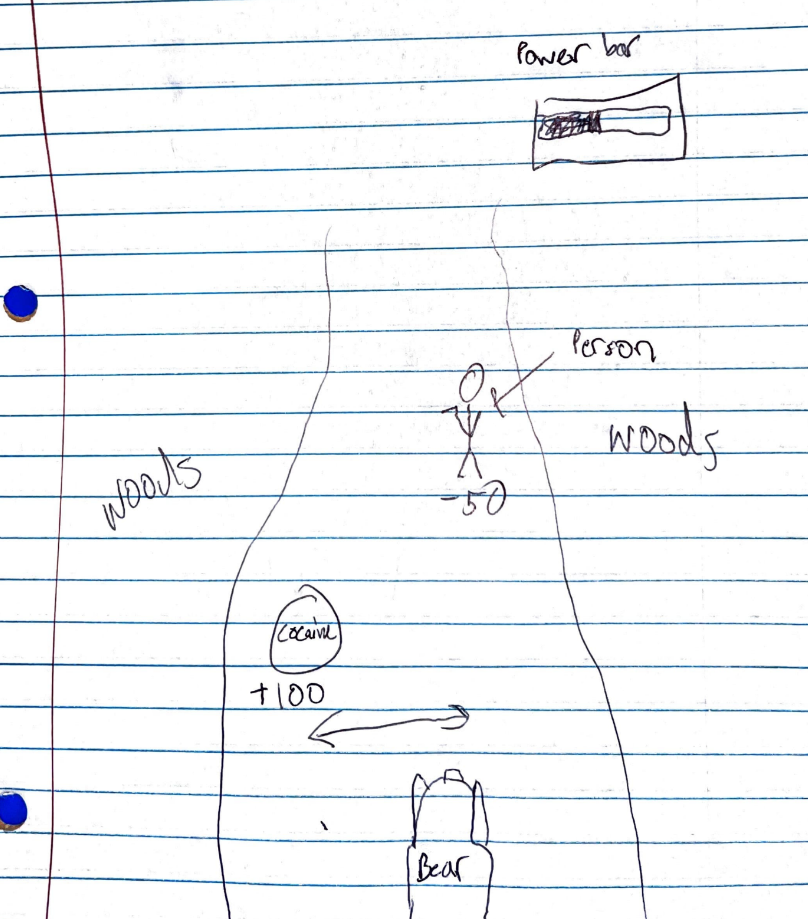 Power bar
Person
woods
woods
-50
cocaine
+100
Bear